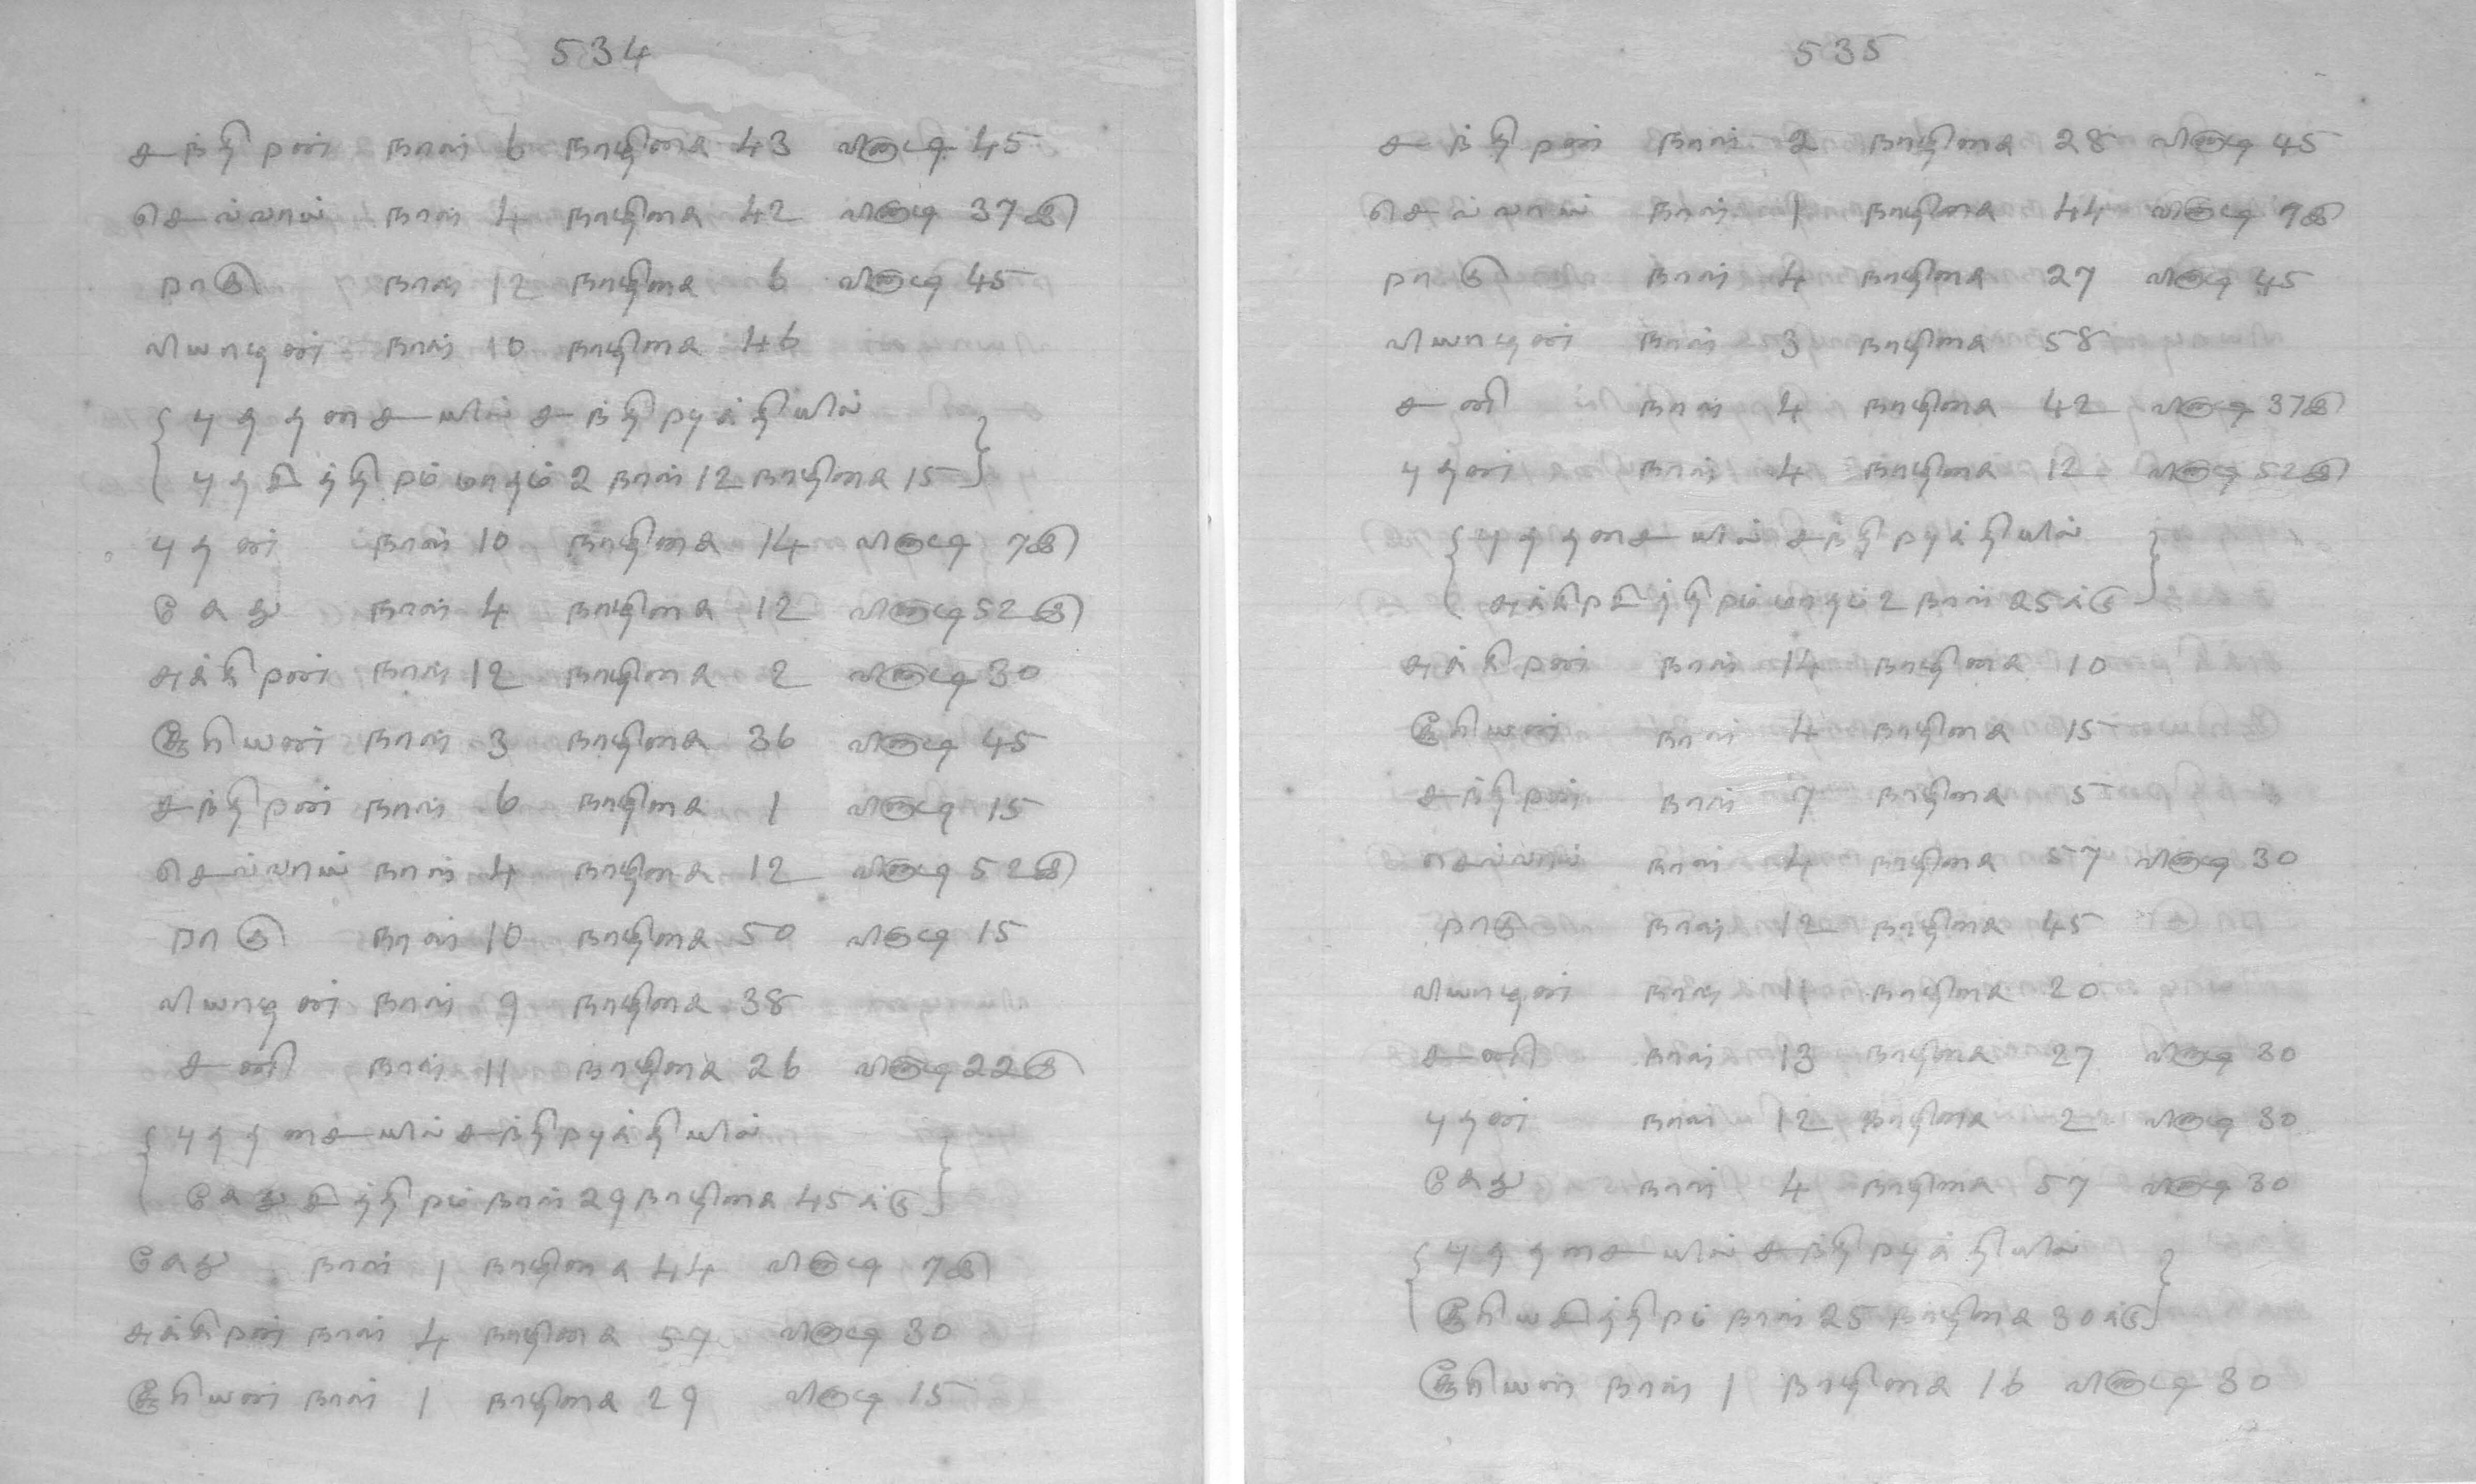 534
சந்திரன் நாள் 6 நாழிகை 43 வினாடி 45
செவ்வாய் நாள் 4 நாழிகை 42 வினாடி 37½
ராகு நாள் 12 நாழிகை 6 வினாடி 45
வியாழன் நாள் 10 நாழிகை 46
புததசையில் சந்திரபுக்தியில்
புதசித்திரம் மாதம் 2 நாள் 12 நாழிகை 15
புதன் நாள் 10 நாழிகை 14 வினாடி 7½
கேது நாள் 4 நாழிகை 12 வினாடி 52½
சுக்கிரன் நாள் 12 நாழிகை 2 வினாடி 30
சூரியன் நாள் 3 நாழிகை 36 வினாடி 45
சந்திரன் நாள் 6 நாழிகை 1 வினாடி 15
செவ்வாய் நாள் 4 நாழிகை 12 வினாடி 52½
ராகு நாள் 10 நாழிகை 50 வினாடி 15
வியாழன் நாள் 9 நாழிகை 38
சனி நாள் 11 நாழிகை 26 வினாடி 22½
புததசையில் சந்திரபுக்தியில்
கேதுசித்திரம் நாள் 29 நாழிகை 45க்கு
கேது நாள் 1 நாழிகை 44 வினாடி 7½
சுக்கிரன் நாள் 4 நாழிகை 57 வினாடி 30
சூரியன் நாள் 1 நாழிகை 29 வினாடி 15
535
சந்திரன் நாள் 2 நாழிகை 28 வினாடி 45
செவ்வாய் நாள் 1 நாழிகை 44 வினாடி 7½
ராகு நாள் 4 நாழிகை 27 வினாடி 45
வியாழன் நாள் 3 நாழிகை 58
சனி நாள் 4 நாழிகை 42 வினாடி 37½
புதன் நாள் 4 நாழிகை 12 வினாடி 52½
புததசையில் சந்திரபுக்தியில்
சுக்கிரசித்திரம் மாதம் 2 நாள் 25க்கு
சுக்கிரன் நாள் 14 நாழிகை 10
சூரியன் நாள் 4 நாழிகை 15
சந்திரன் நாள் 7 நாழிகை 5
செவ்வாய் நாள் 4 நாழிகை 57 வினாடி 30
ராகு நாள் 12 நாழிகை 45
வியாழன் நாள் 11 நாழிகை 20
சனி நாள் 13 நாழிகை 27 வினாடி 30
புதன் நாள் 12 நாழிகை 2 வினாடி 30
கேது நாள் 4 நாழிகை 57 வினாடி 30
புததசையில் சந்திரபுக்தியில்
சூரியசித்திரம் நாள் 25 நாழிகை 30க்கு
சூரியன் நாள் 1 நாழிகை 16 வினாடி 30